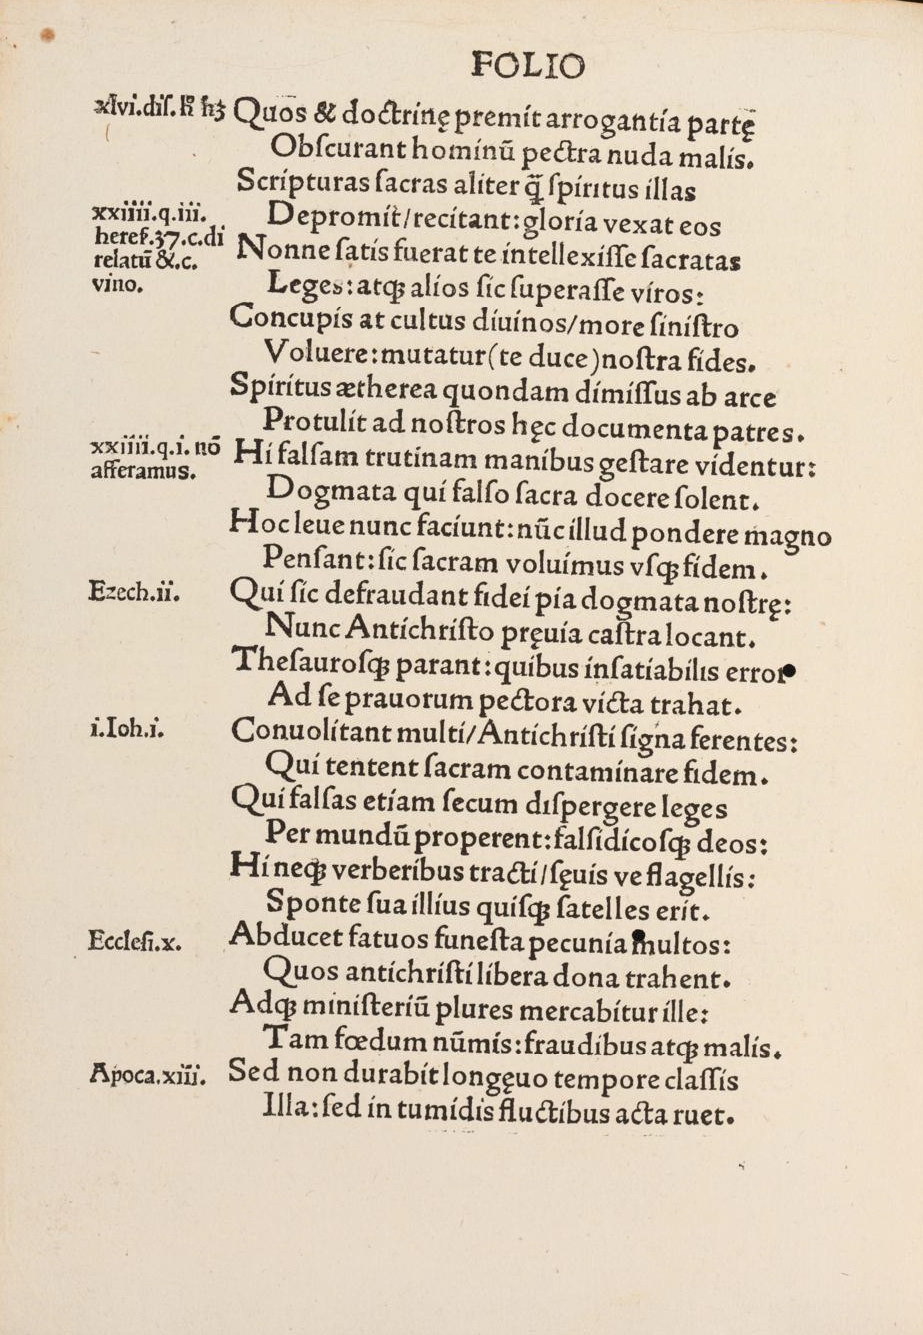 FOLIO
xlvi.diſ.
Quos & doctrinę premit arrogantia partę
Obſcurant hominū pectra nuda malis.
Scripturas ſacras aliter q̄ ſpiritus illas
xxiiii.q.iii.
Depromit/recitant:gloria vexat eos
hereſ.37.c.di
Nonne ſatis fuerat te intellexiſſe ſacratas
relatū &.c.
vino.
Leges:atqꝫ alios ſic ſuperaſſe viros:
Concupis at cultus diuinos/more ſiniſtro
Voluere:mutatur(te duce)noſtra fides.
Spiritus ætherea quondam dimiſſus ab arce
Protulit ad noſtros hęc documenta patres.
xxiiii.q.i. nō
Hi falſam trutinam manibus geſtare videntur:
afferamus.
Dogmata qui falſo ſacra docere ſolent.
Hoc leue nunc faciunt:nūc illud pondere magno
Penſant:ſic ſacram voluimus vſqꝫ fidem.
Ezech.ii.
Qui ſic defraudant fidei pia dogmata noſtrę:
Nunc Antichriſto pręuia caſtra locant.
Theſauroſqꝫ parant:quibus inſatiabilis error
Ad ſe prauorum pectora victa trahat.
i.Ioh.i.
Conuolitant multi/Antichriſti ſigna ferentes:
Qui tentent ſacram contaminare fidem.
Qui falſas etiam ſecum diſpergere leges
Per mundū properent:falſidicoſqꝫ deos:
Hi neqꝫ verberibus tracti/ſęuis ve flagellis:
Sponte ſua illius quiſqꝫ ſatelles erit.
Eccleſi.x.
Abducet fatuos funeſta pecunia multos:
Quos antichriſti libera dona trahent.
Adqꝫ miniſteriū plures mercabitur ille:
Tam fœdum nūmis:fraudibus atqꝫ malis.
Apoca.xiii.
Sed non durabit longęuo tempore claſſis
Illa:ſed in tumidis fluctibus acta ruet.